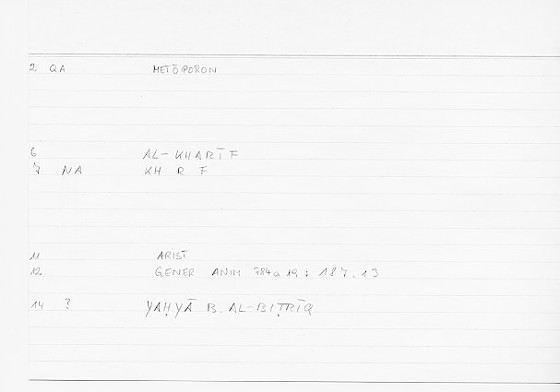 2 QA METŌPORON
6 AL-KHARĪF
7 NA KH R F
11 ARIST
12 GENER ANIM 784a 19 : 187.13
14 ? YAḤYĀ B. AL-BIṬRĪQ